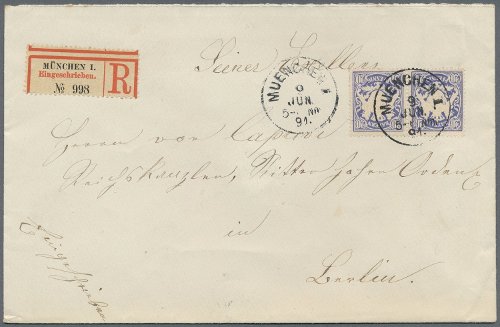 MÜNCHEN I.
Eingeschrieben.
№ 998
R
Seiner Exzellenz
MUENCHEN I
9
JUN.
5-6 NM
91.
MUENCHEN I.
9
JUN.
5-6 NM
91.
Herrn von Caprivi
Reichskanzler, Ritter hoher Orden
in
Berlin.
Eingeschrieben